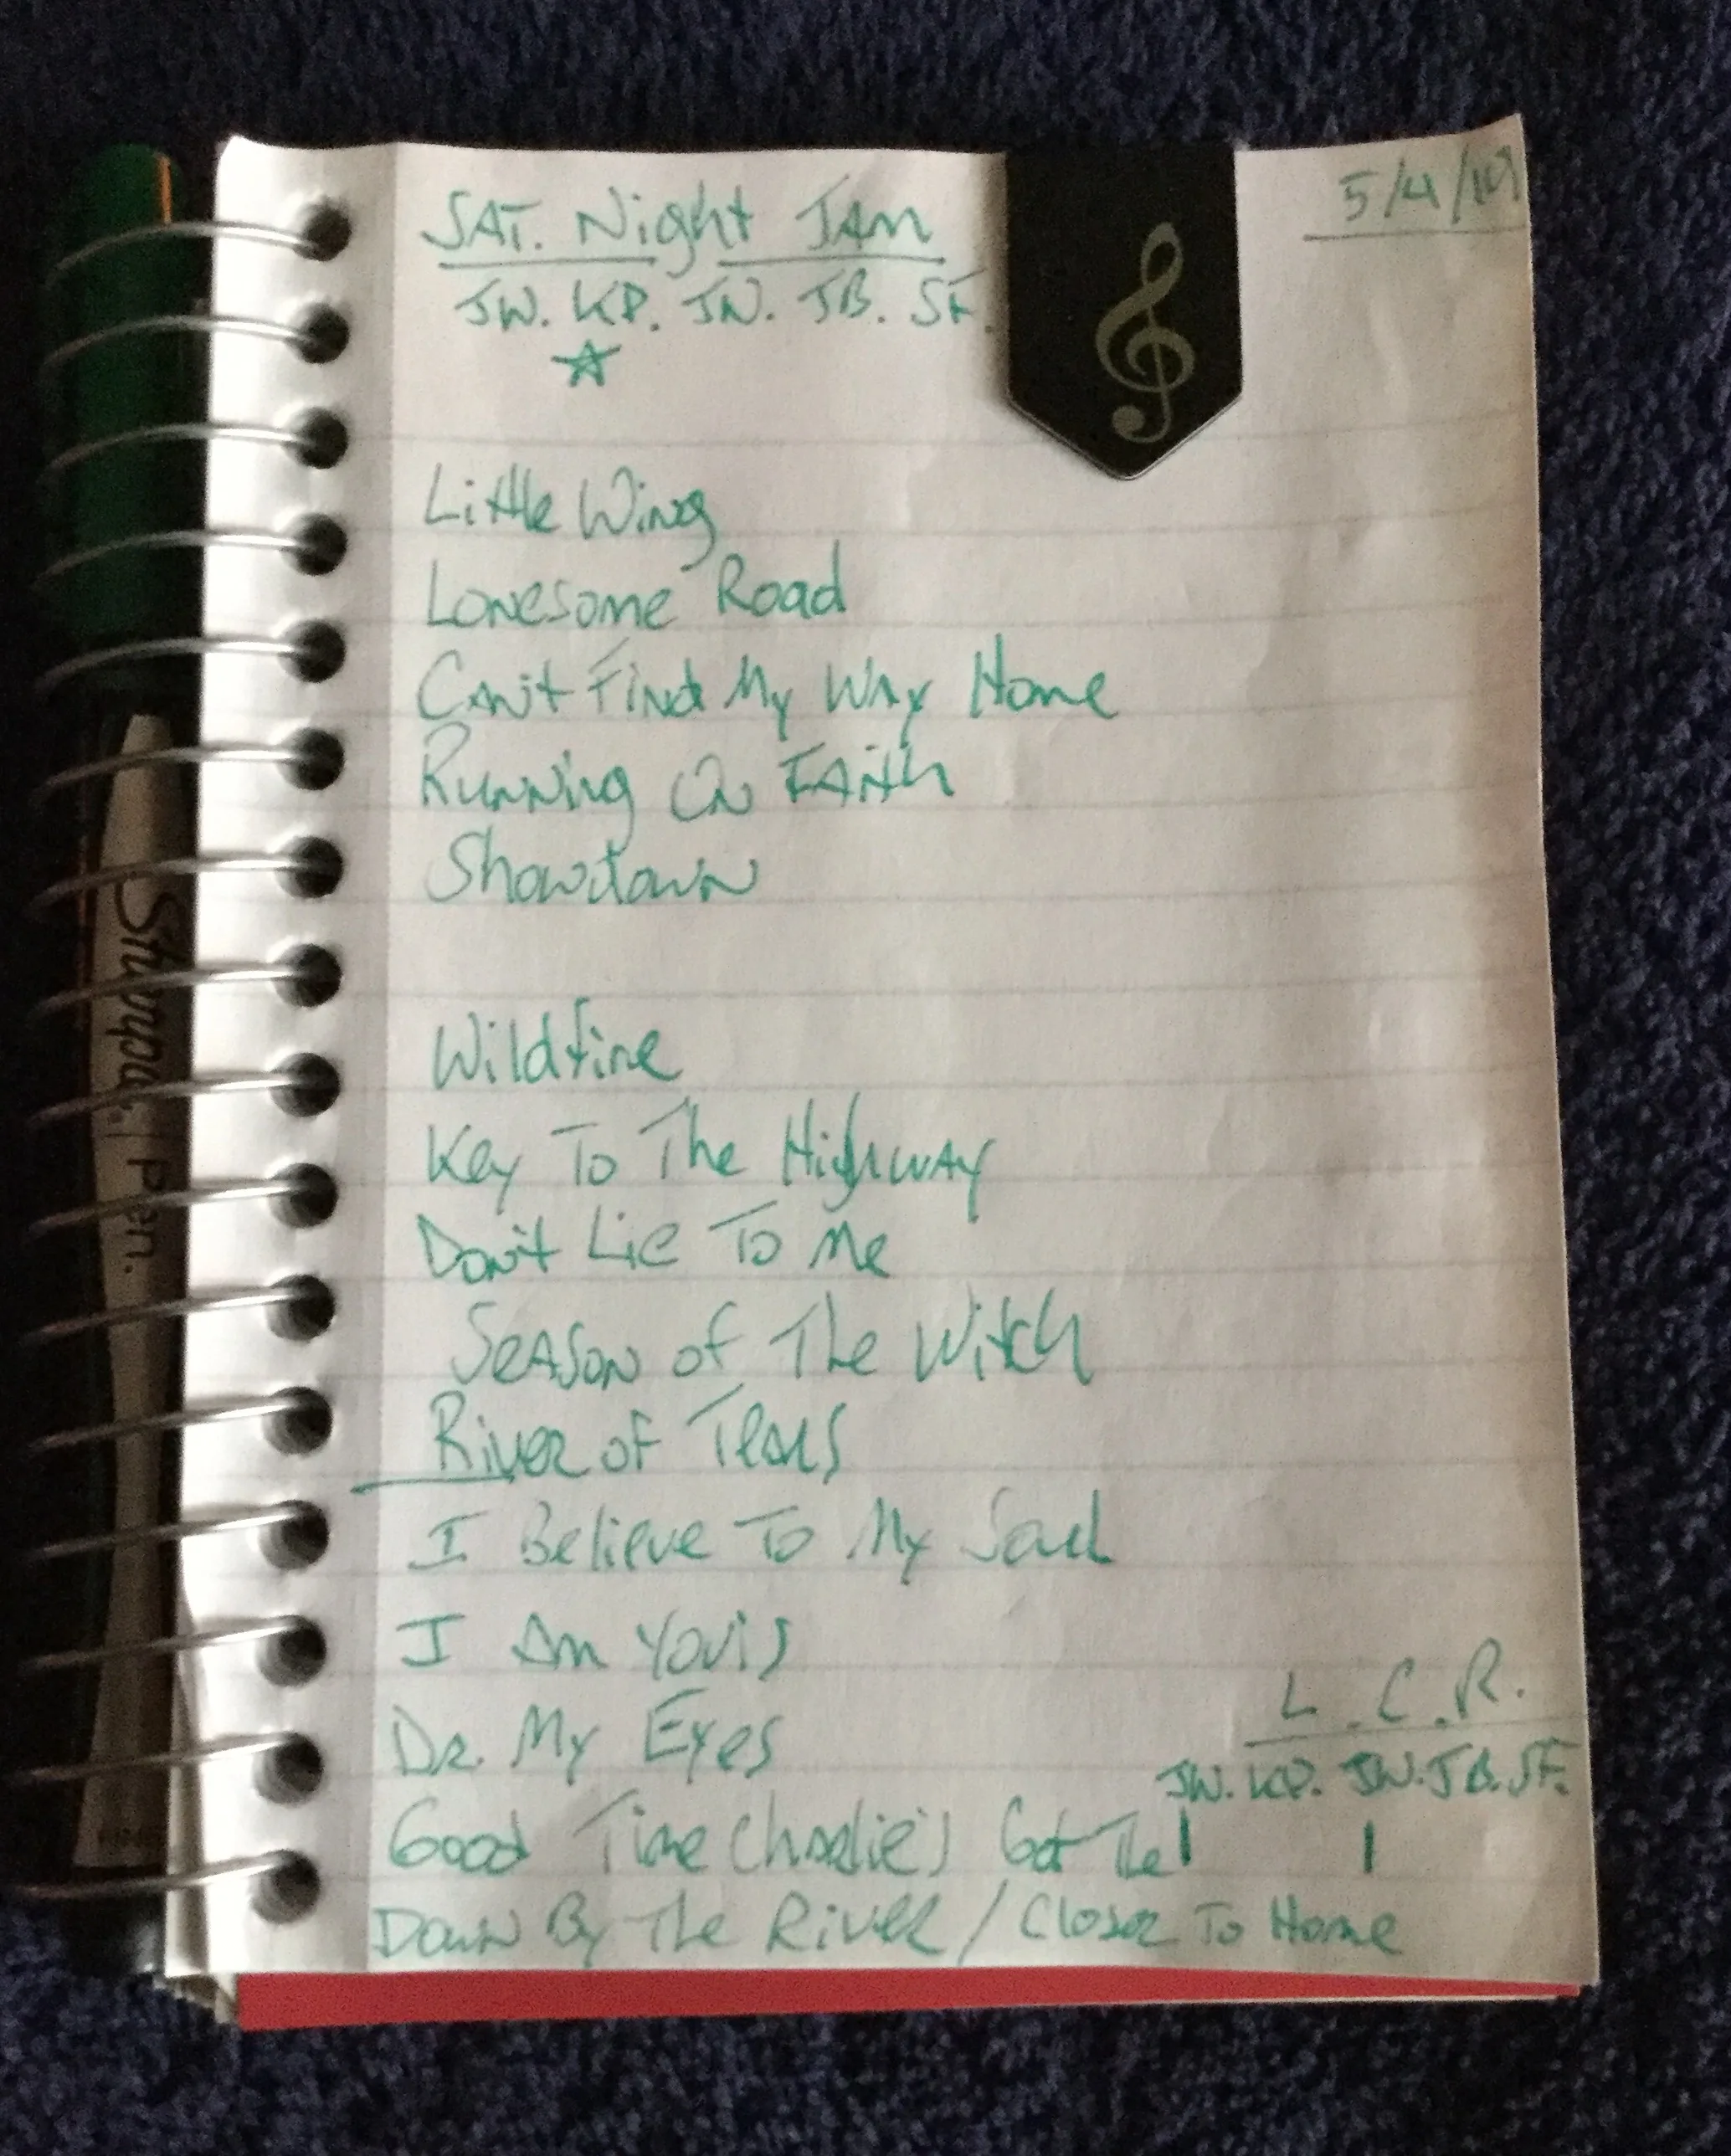 5/4/19
SAT. Night JAM
JW. KP. JN. JB. SF.
Little Wing
Lonesome Road
Can't Find My Way Home
Running On Faith
Showdown
Wildfire
Key To The Highway
Don't Lie To Me
Season of The Witch
River of Tears
I Believe To My Soul
I Am Yours
Dr. My Eyes
L.C.R.
JW. KP. JN. JB. SF.
Good Time Charlie's Got The
Down By The River / Closer To Home
Sharpie. Pen.